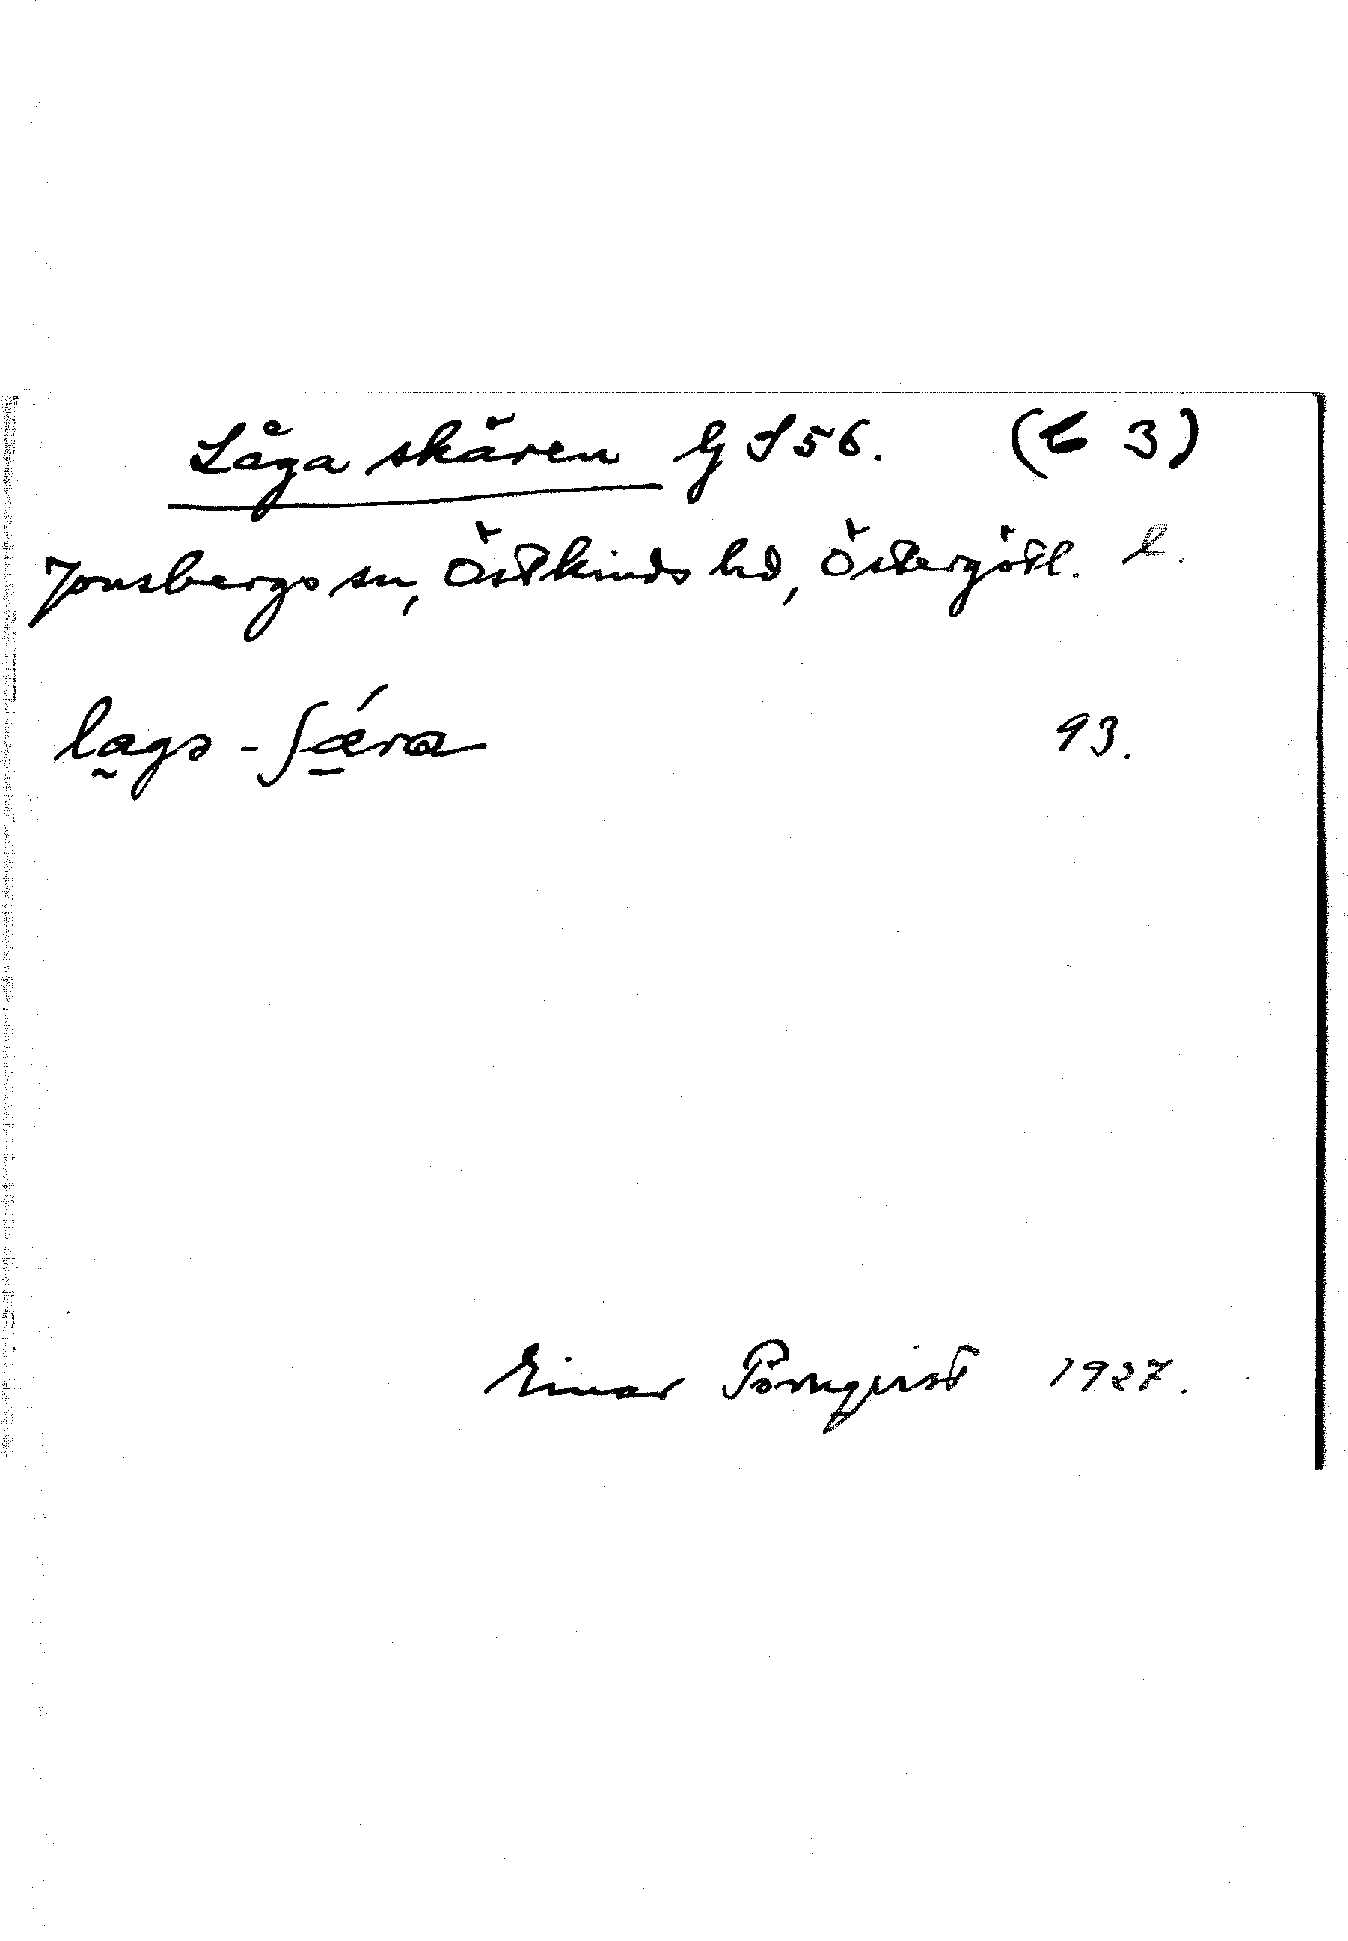 Låga skären G S 56. (C 3)
Jonsbergs sn, Östkinds hd, Östergötl. l.
lags - ʃǽra 93.
Einar Törnqvist 1927.